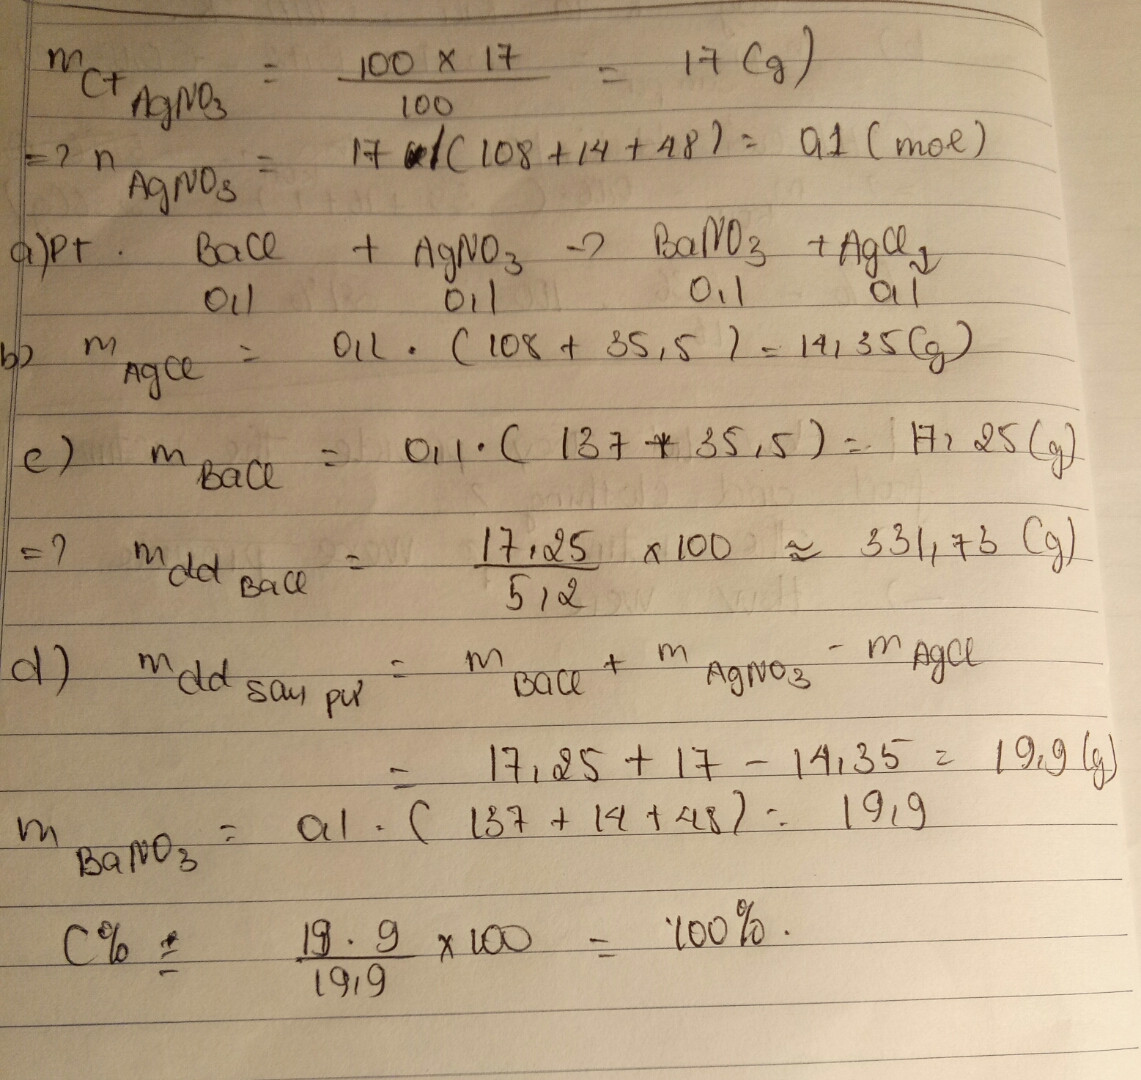 m ct AgNO3 = 100 x 17 / 100 = 17 (g)
=> n AgNO3 = 17 / (108 + 14 + 48) = 0,1 (mol)
a) Pt . BaCl + AgNO3 -> BaNO3 + AgCl↓
0,1 0,1 0,1 0,1
b) m AgCl = 0,1 . (108 + 35,5) = 14,35 (g)
c) m BaCl = 0,1 . (137 + 35,5) = 17,25 (g)
=> m dd BaCl = 17,25 / 5,2 x 100 ≈ 331,73 (g)
d) m dd sau pứ = m BaCl + m AgNO3 - m AgCl
= 17,25 + 17 - 14,35 = 19,9 (g)
m BaNO3 = 0,1 . (137 + 14 + 48) = 19,9
C% = 19.9 / 19,9 x 100 = 100%.